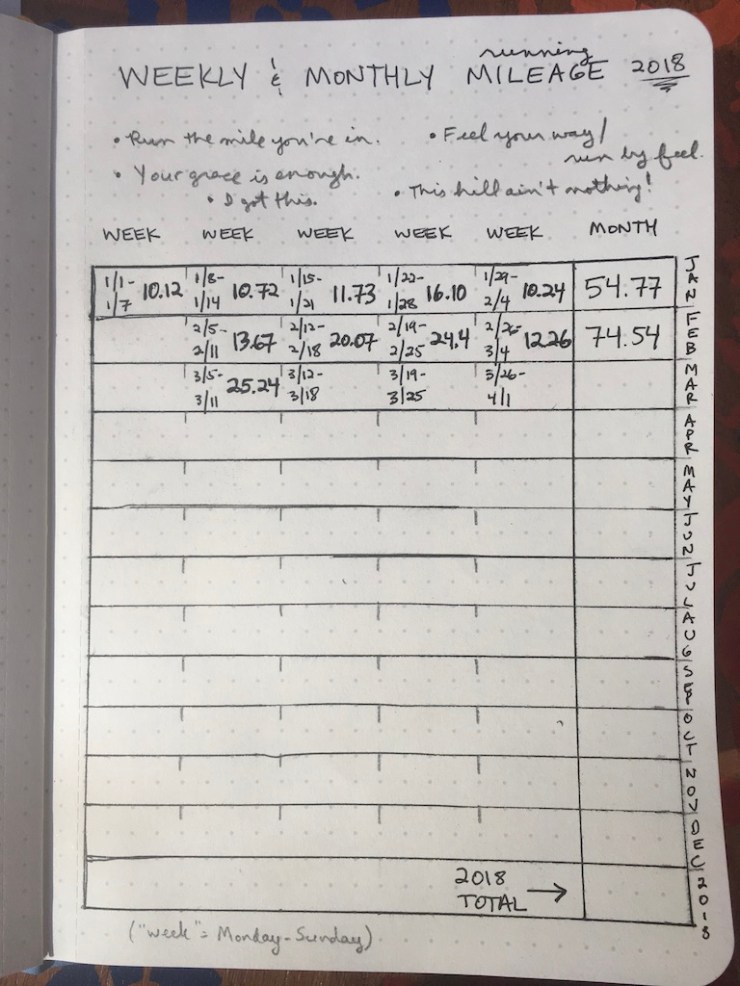 running
WEEKLY & MONTHLY MILEAGE 2018
• Run the mile you're in. • Feel your way/
run by feel.
• Your grace is enough.
• I got this. • This hill ain't nothing!
WEEK WEEK WEEK WEEK WEEK MONTH
1/1- 1/7 10.12 1/8- 1/14 10.72 1/15- 1/21 11.73 1/22- 1/28 16.10 1/29- 2/4 10.24 54.77 JAN
2/5- 2/11 13.67 2/12- 2/18 20.07 2/19- 2/25 24.4 2/26- 3/4 12.26 74.54 FEB
3/5- 3/11 25.24 3/12- 3/18 3/19- 3/25 3/26- 4/1 MAR
APR
MAY
JUN
JUL
AUG
SEP
OCT
NOV
DEC
2018
TOTAL → 2018
("week" = Monday-Sunday)